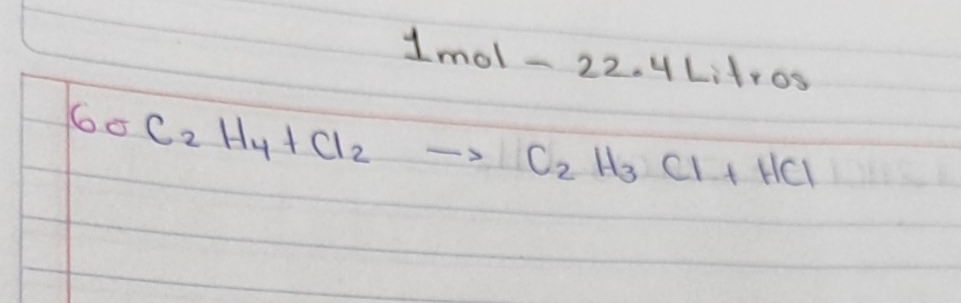 1mol - 22.4 Litros
60 C2 H4 + Cl2 -> C2 H3 Cl + HCl